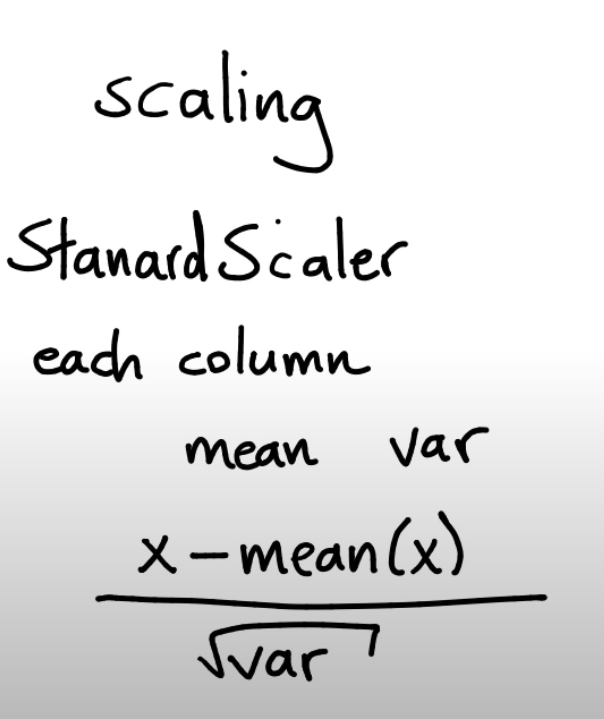 scaling
StanardScaler
each column
mean var
x - mean(x)
√var